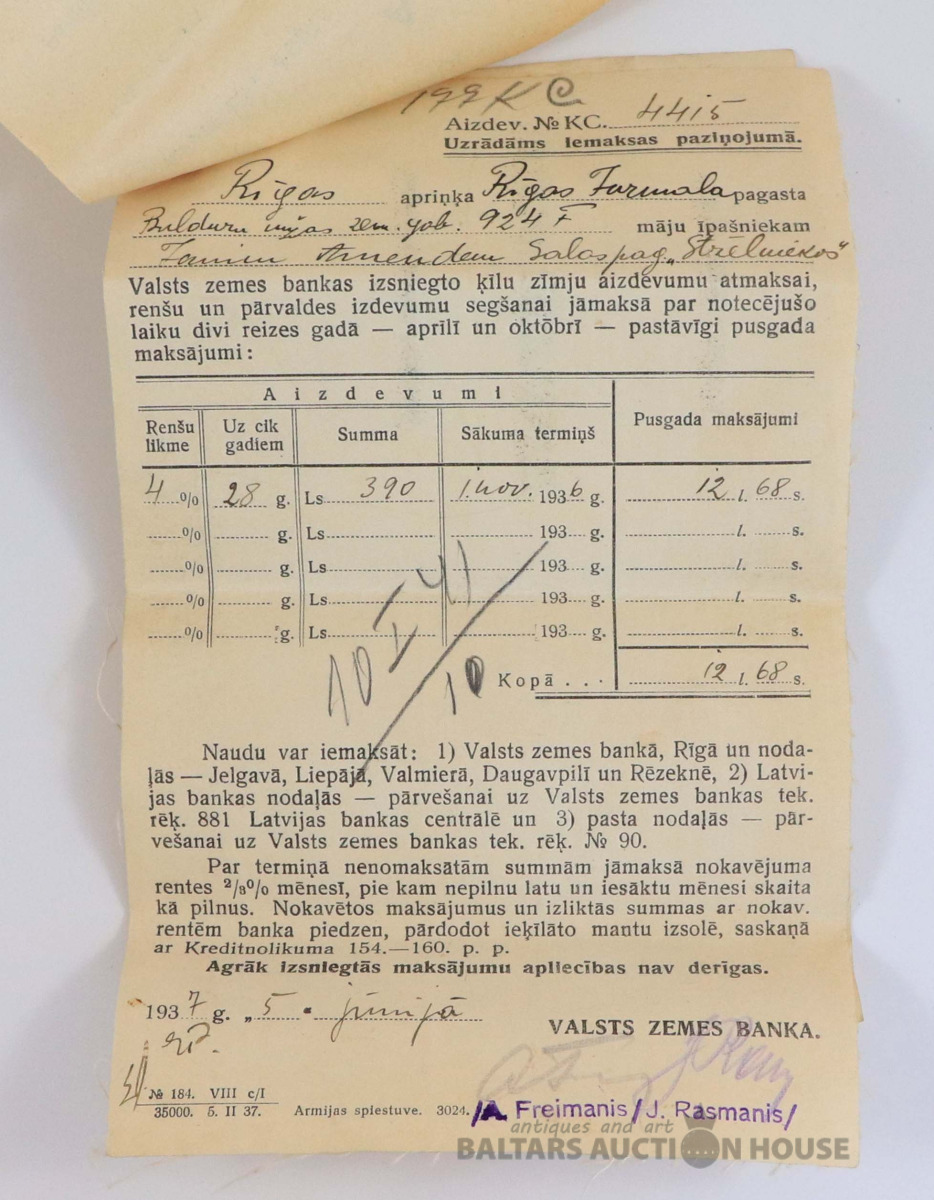 199 K C
Aizdev. № KC. 4415
Uzrādāms iemaksas paziņojumā.
Rīgas apriņķa Rīgas Jurmala pagasta
Bulduru muižas zem. gab. 924 F māju īpašniekam
Salas pag. „Strēlniekos"
Valsts zemes bankas izsniegto ķīlu zīmju aizdevumu atmaksai,
renšu un pārvaldes izdevumu segšanai jāmaksā par notecējušo
laiku divi reizes gadā — aprīlī un oktōbrī — pastāvīgi pusgada
maksājumi:
Aizdevumi
Renšu likme Uz cik gadiem Summa Sākuma termiņš Pusgada maksājumi
4 % 28 g. Ls 390 1. nov. 1936 g. 12 l. 68 s.
% g. Ls 193 g. l. s.
% g. Ls 193 g. l. s.
% g. Ls 193 g. l. s.
% g. Ls 193 g. l. s.
10 I 41
10
Kopā . . . 12 l. 68 s.
Naudu var iemaksāt: 1) Valsts zemes bankā, Rīgā un noda-
ļās — Jelgavā, Liepājā, Valmierā, Daugavpilī un Rēzeknē, 2) Latvi-
jas bankas nodaļās — pārvešanai uz Valsts zemes bankas tek.
rēķ. 881 Latvijas bankas centrālē un 3) pasta nodaļās — pār-
vešanai uz Valsts zemes bankas tek. rēķ. № 90.
Par termiņā nenomaksātām summām jāmaksā nokavējuma
rentes ²/₃% mēnesī, pie kam nepilnu latu un iesāktu mēnesi skaita
kā pilnus. Nokavētos maksājumus un izliktās summas ar nokav.
rentēm banka piedzen, pārdodot ieķīlāto mantu izsolē, saskaņā
ar Kreditnolikuma 154.—160. p. p.
Agrāk izsniegtās maksājumu apliecības nav derīgas.
1937 g. „5" jūnijā
VALSTS ZEMES BANKA.
№ 184. VIII c/I
35000. 5. II 37. Armijas spiestuve. 3024.
/A. Freimanis/ J. Rasmanis/
antiques and art
BALTARS AUCTION HOUSE